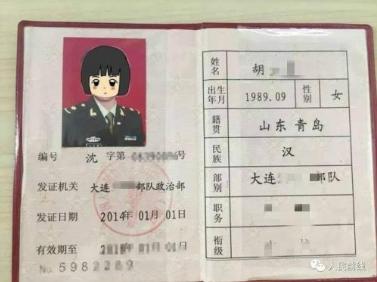 编号 沈 字第 号
发证机关 大连 部队政治部
发证日期 2014年01月01日
有效期至 年 月01日
No 5982289
姓名 胡
出生年月 1989.09 性别 女
籍贯 山东 青岛
民族 汉
部别 大连 部队
职务
衔级
人民前线